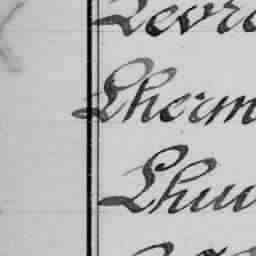 Levra
Lherm
Lhui